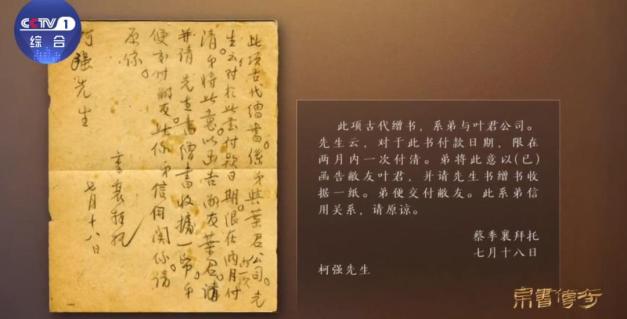 CCTV 1
综合
此項古代繒書。係弟與葉君公司。先
生云对於此書付款日期限在两月内一次付
清。弟将此意以函告敝友葉君。
并請 先生書繒書收據一帋。弟
便交付敝友。此係弟信用関係。請
原諒。
蔡季襄拜托
七月十八日
柯强先生
此项古代缯书，系弟与叶君公司。
先生云，对于此书付款日期，限在
两月内一次付清。弟将此意以(已)
函告敝友叶君，并请先生书缯书收
据一纸。弟便交付敝友。此系弟信
用关系，请原谅。
蔡季襄拜托
七月十八日
柯强先生
帛書传奇